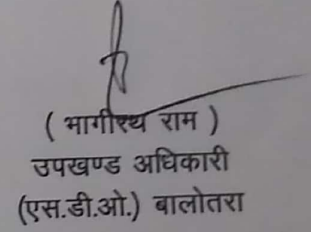 ( भागीरथ राम )
उपखण्ड अधिकारी
(एस.डी.ओ.) बालोतरा